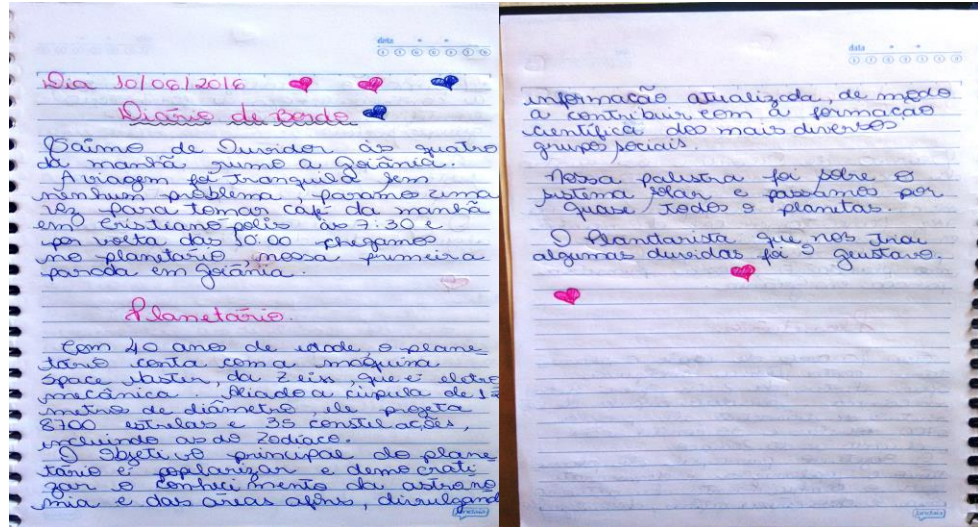 data
Dia 10/06/2016
Diário de Bordo
Saímo de Ouvidor às quatro
da manhã rumo a Goiânia.
A viagem foi tranquila sem
nenhum problema, paramo uma
vez para tomar café da manhã
em Cristianópolis às 7:30 e
por volta das 10:00 chegamos
no planetario, nossa primeira
parada em Goiânia.
Planetário.
Com 40 anos de idade, o plane-
tário conta com a maquina
Space Master, da Zeiss, que é eletro
mecânica. Aliado a cúpula de 12
metro de diâmetro, ele projeta
8700 estrelas e 35 constelações,
incluindo as do Zodíaco.
O Objetivo principal do plane
tário é popularizar e democrati
zar o conhecimento da astrono
mia e das áreas afins, divulgando
data
informação atualizada, de modo
a contribuir com a formacão
científica dos mais diversos
grupos sociais.
Nossa palestra foi sobre o
sistema solar e passamos por
quase todos o planetas.
O Planetarista que nos tirou
algumas duvidas foi o Gustavo.